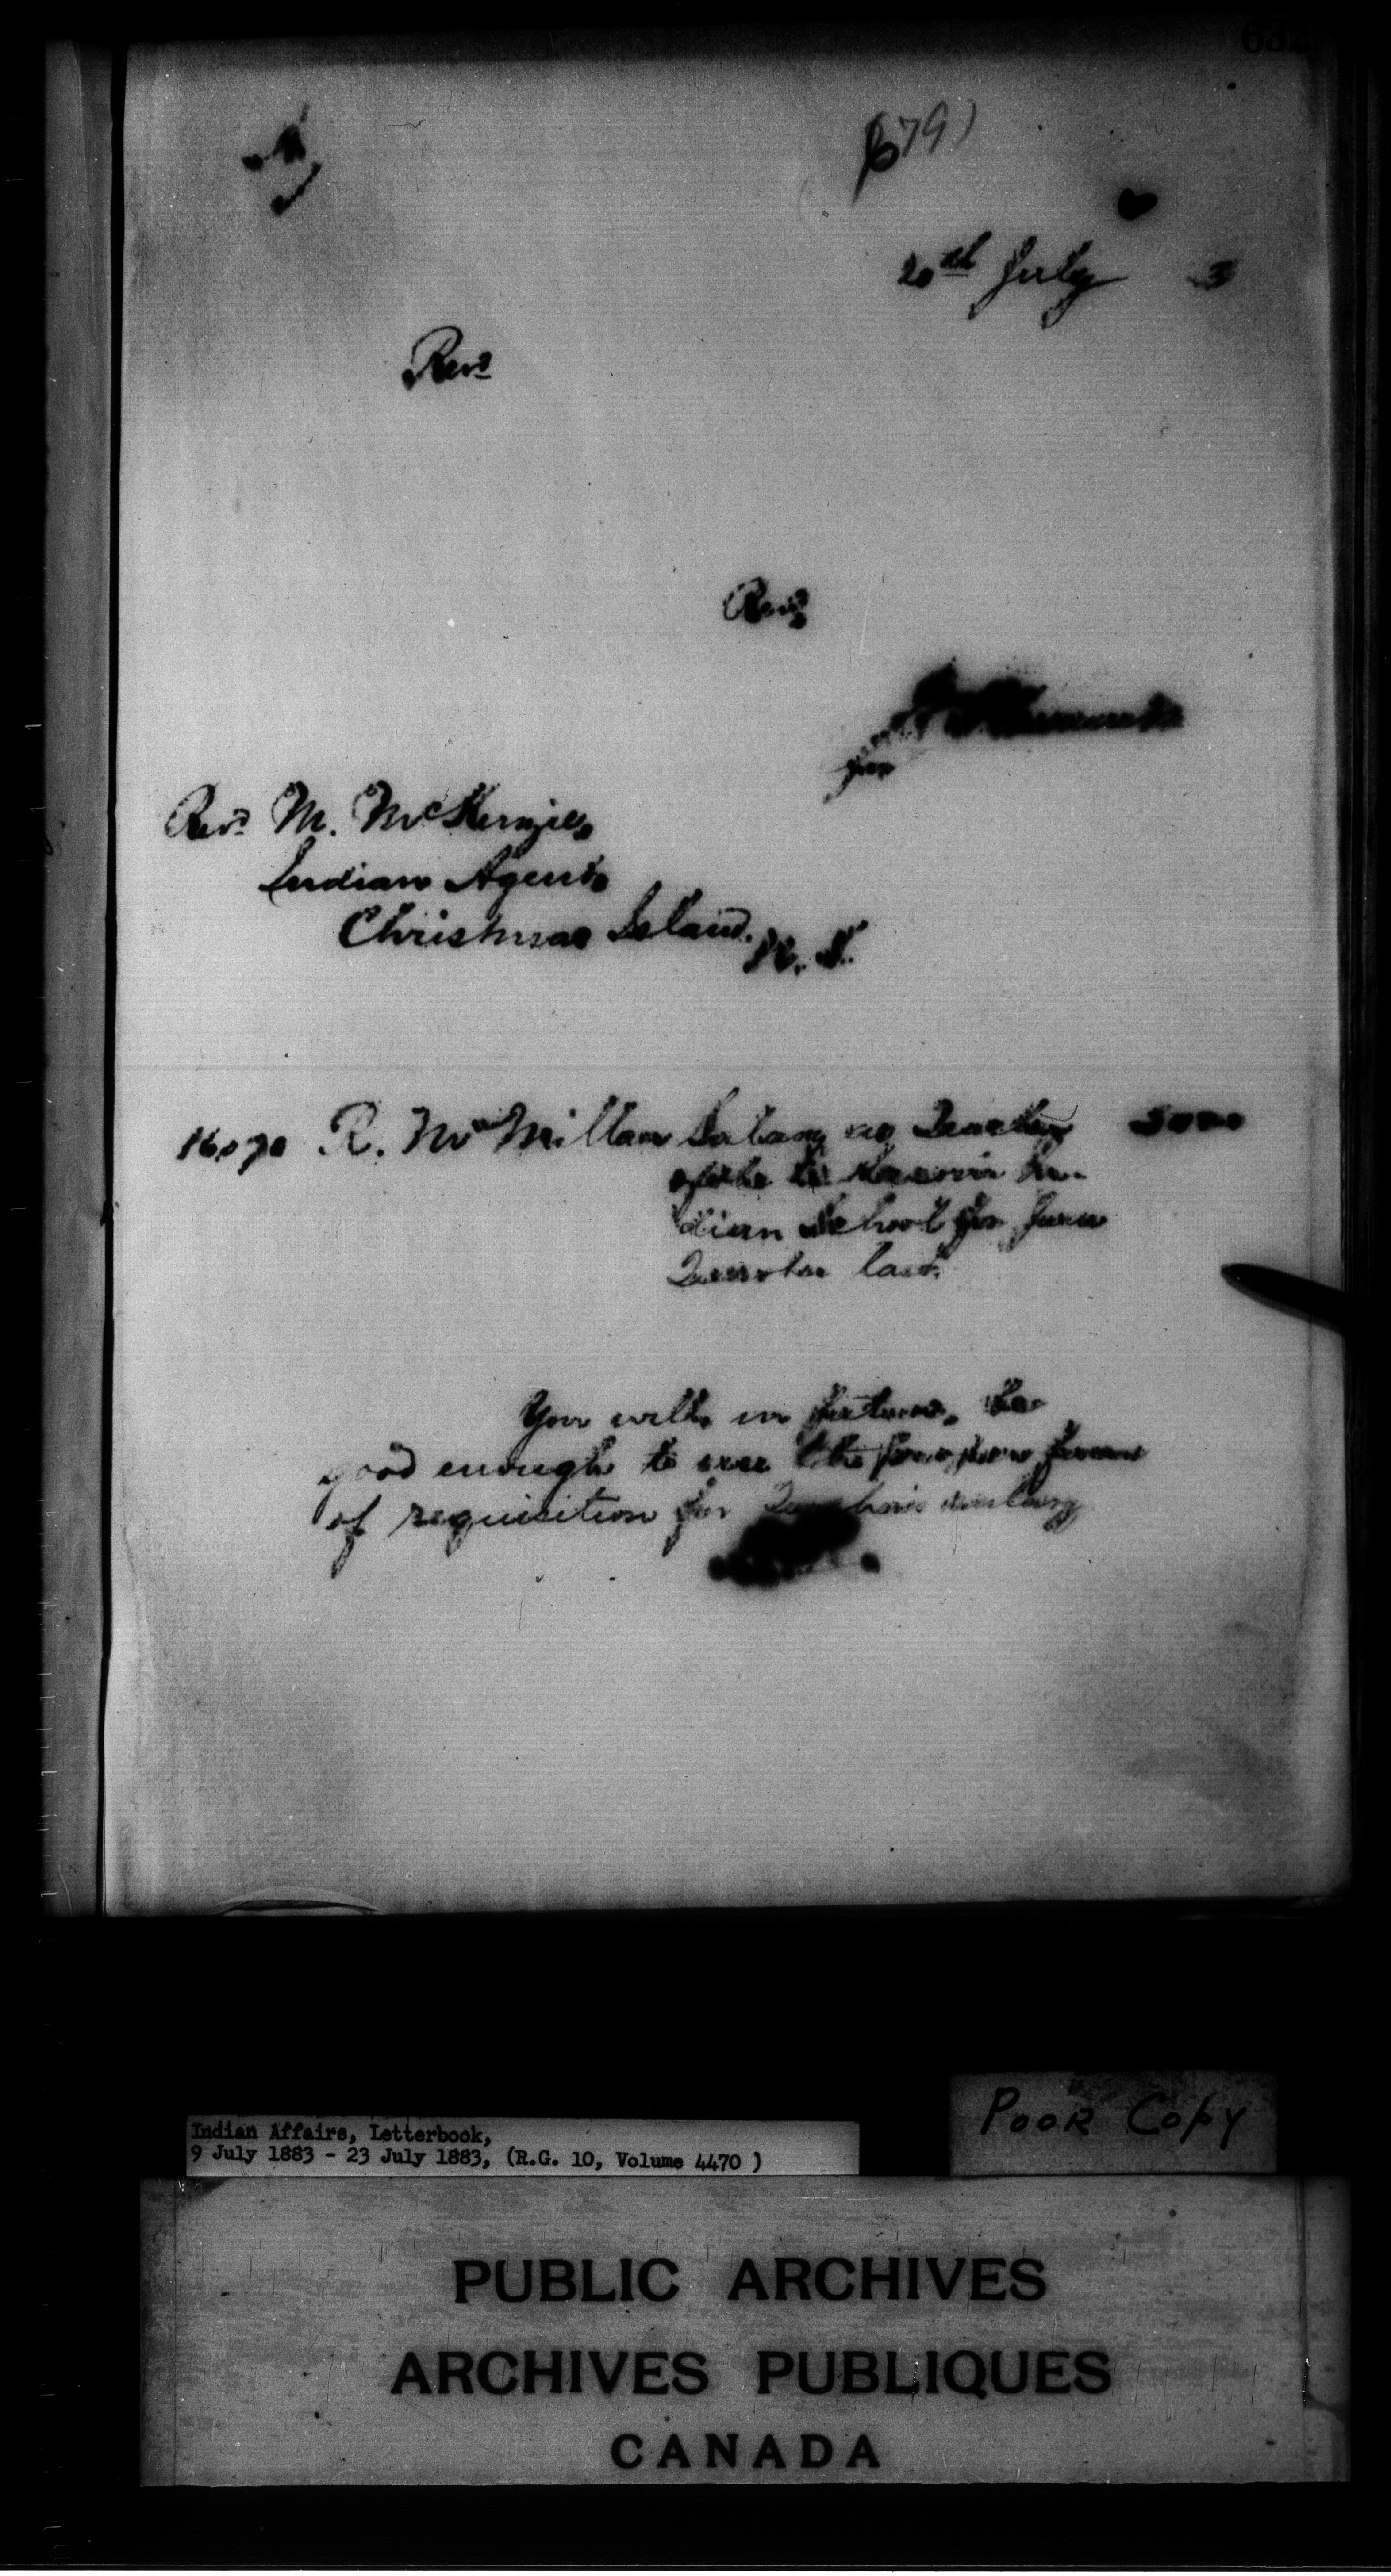 (679)
20th July 3
Revd
Revd
for
Revd M. McKenzie,
Indian Agent,
Christmas Island. N. S.
R. McMillan Salary as Teacher 5000
of the In-
dian School for June
Quarter last.
You will, in future, be
good enough to use the proper form
of requisition for Teachers salary
Indian Affairs, Letterbook,
9 July 1883 - 23 July 1883, (R.G. 10, Volume 4470 )
POOR COPY
PUBLIC ARCHIVES
ARCHIVES PUBLIQUES
CANADA